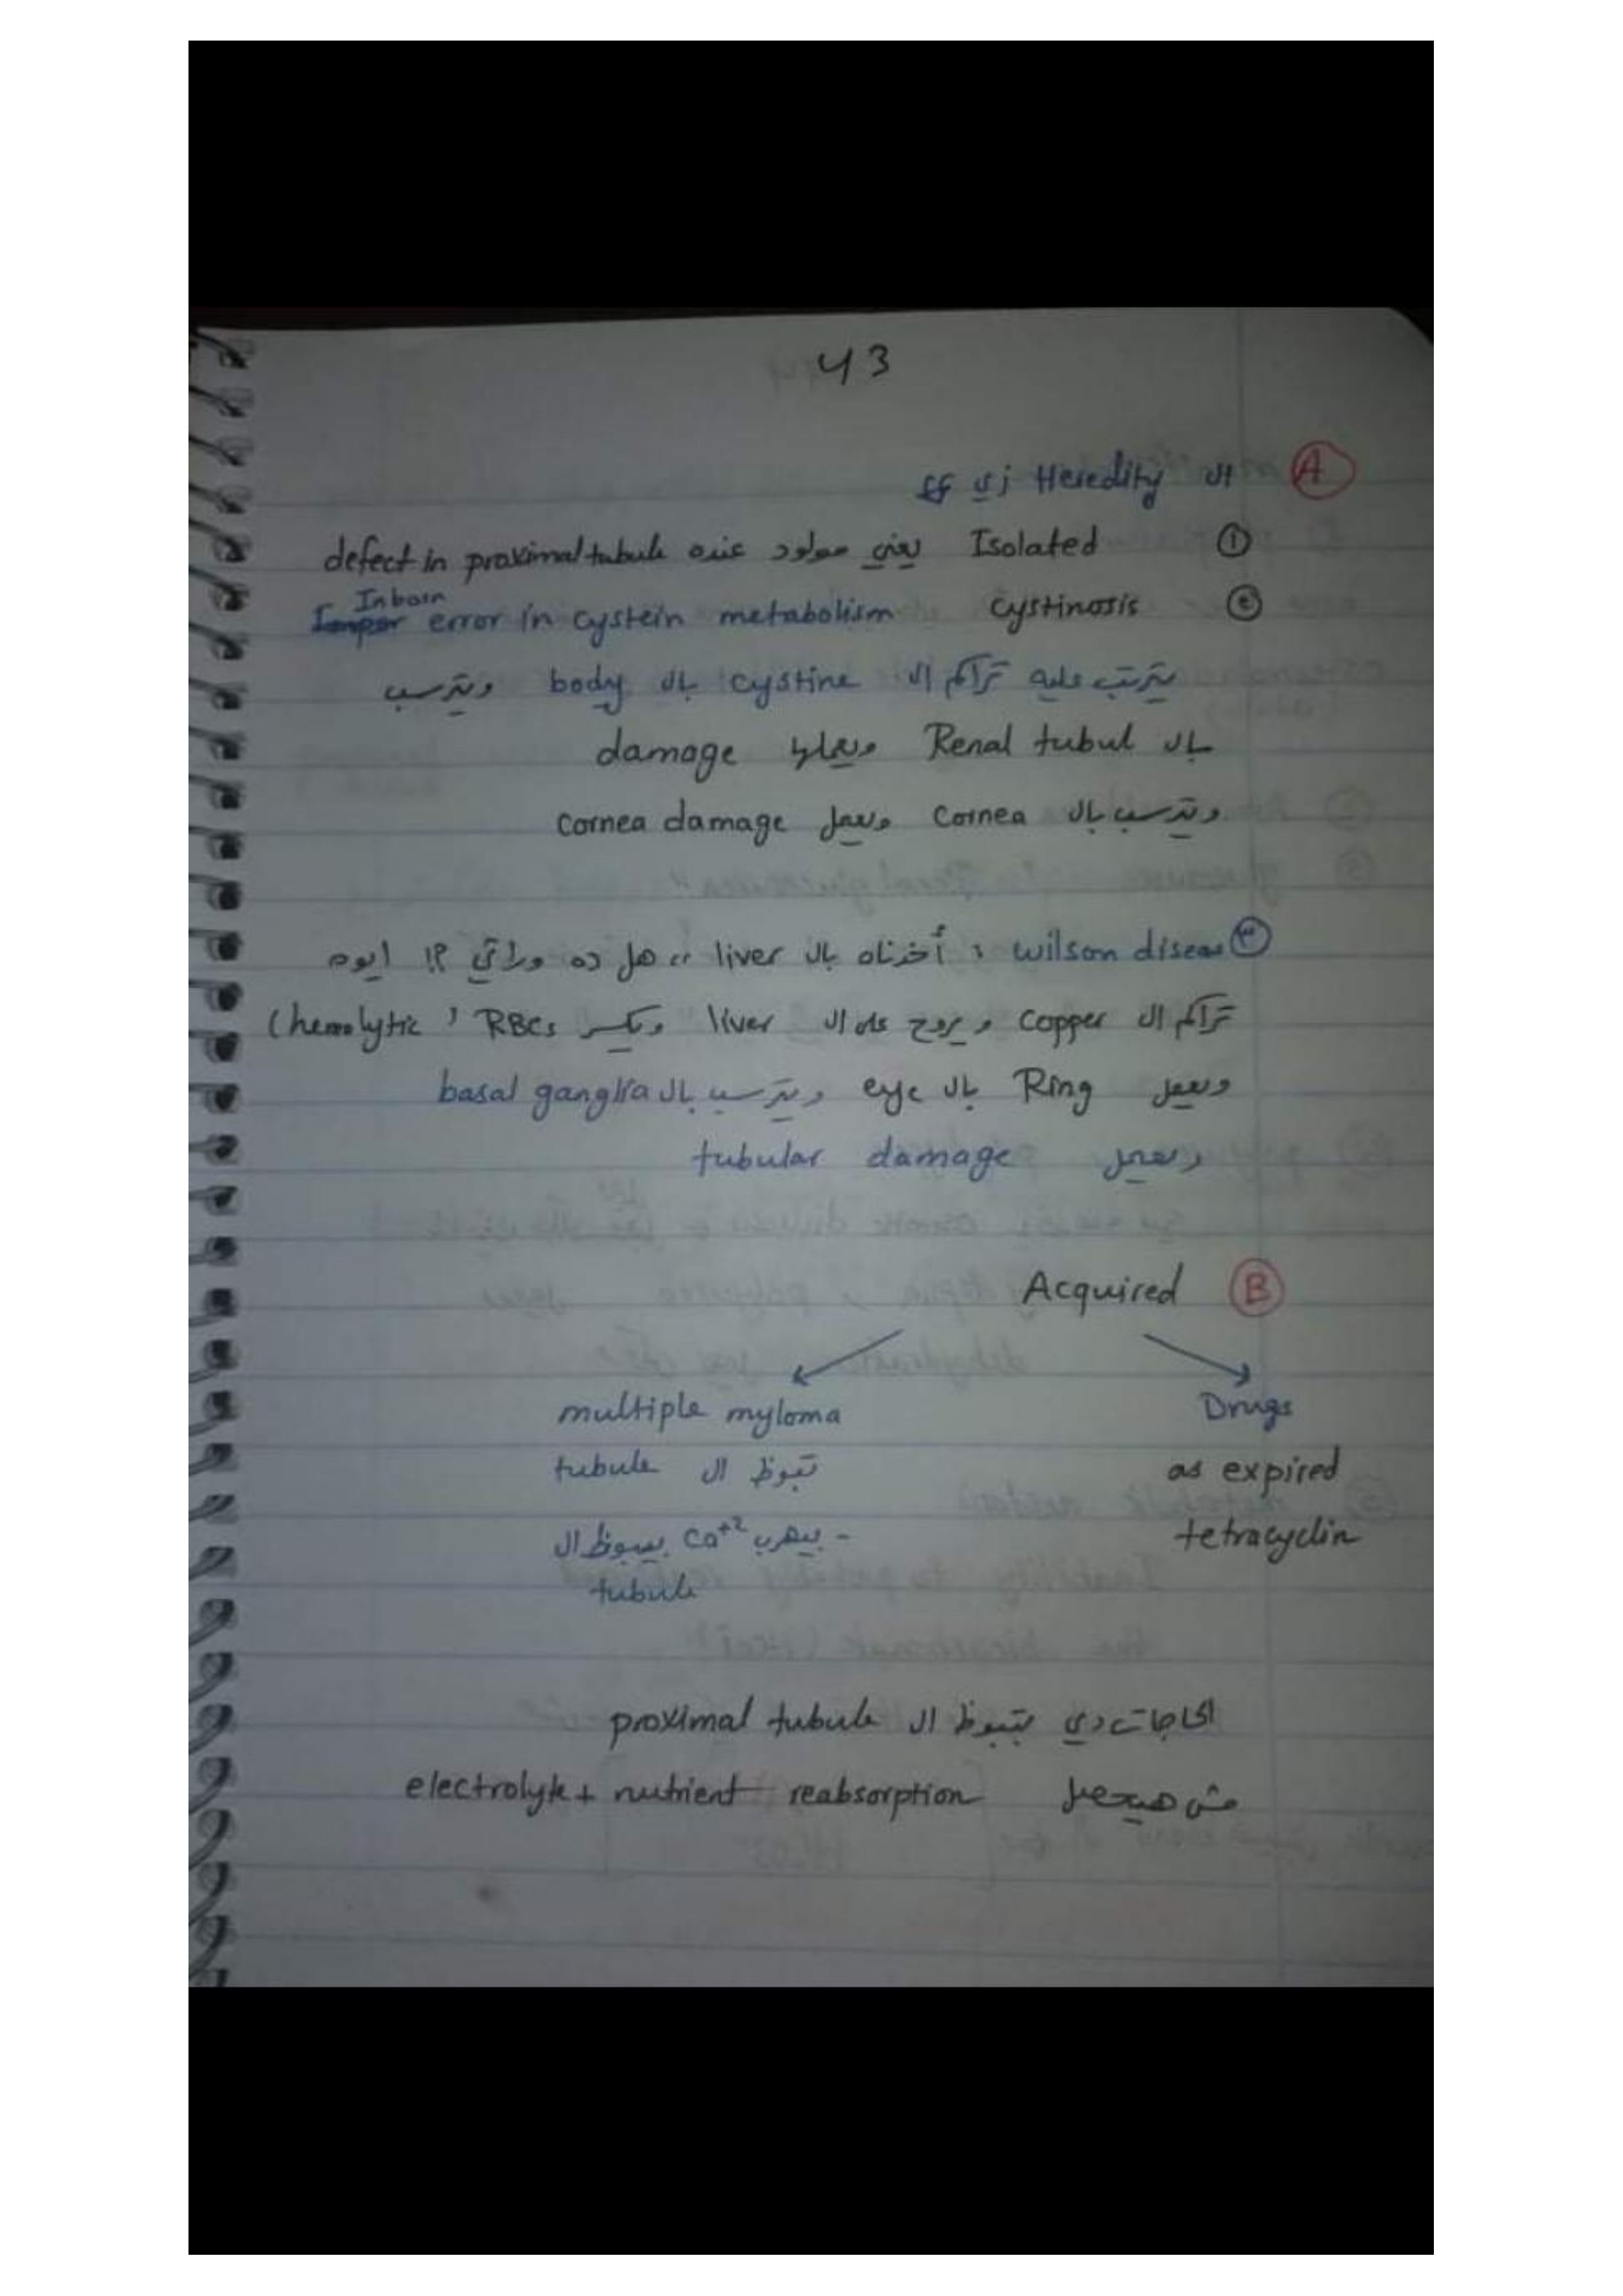 43
Ⓐ ال Heredity زي ££
① Isolated يعني مولود عنده defect in proximal tubule
② cystinosis Inborn error in cystein metabolism
يترتب عليه تراكم ال cystine بال body ويترسب
بال Renal tubul ويعملها damage
ويترسب بال cornea ويعمل cornea damage
③ wilson diseas : أخذناه بال liver ،، هل ده وراثي ؟! ايوه
تراكم ال copper ويروح على ال liver ويكسر RBCs ( hemolytic )
ويعمل Ring بال eye ويترسب بال basal ganglia
ويعمل tubular damage
Ⓑ Acquired
Drugs
as expired
tetracyclin
multiple myloma
تبوظ ال tubule
- بيهرب Ca+2 بيبوظ ال
tubule
الحاجات دي بتبوظ ال proximal tubule
مش هيحصل electrolyte + nutrient reabsorption